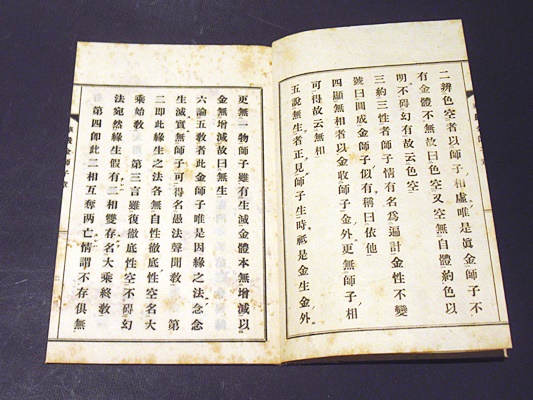 二辨色空者以師子相虛唯是眞金師子不
有金體不無故曰色空又空無自體約色以
明不碍幻有故云色空
三約三性者師子情有名爲遍計金性不變
號曰圓成金師子似有稱曰依他
四顯無相者以金收師子金外更無師子相
可得故云無相
五說無生者正見師子生時祇是金生金外
更無一物師子雖有生滅金體本無增減以
金無增減故曰無生
六論五敎者此金師子唯是因緣之法念念
生滅實無師子可得名愚法聲聞敎　第
二即此緣生之法各無自性徹底性空名大
乘始敎　第三言雖復徹底性空不碍幻
法宛然緣生假有二相雙存名大乘終敎
第四卽此二相互奪两亡情謂不存俱無